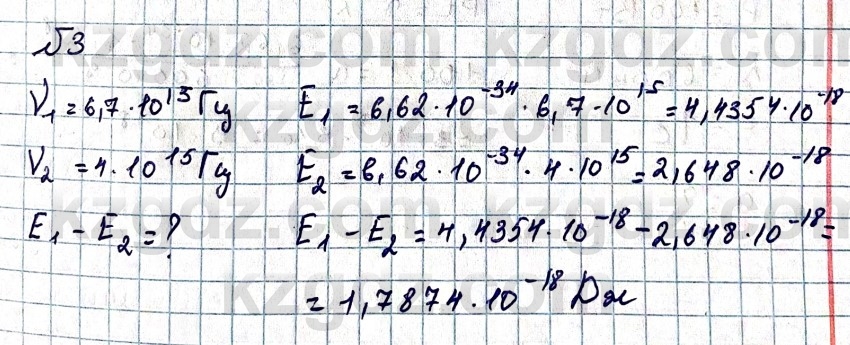 √3
ν₁ = 6,7·10¹³ Гц E₁ = 6,62·10⁻³⁴ · 6,7·10¹⁵ = 4,4354·10⁻¹⁸
ν₂ = 4·10¹⁵ Гц E₂ = 6,62·10⁻³⁴ · 4·10¹⁵ = 2,648·10⁻¹⁸
E₁ − E₂ = ? E₁ − E₂ = 4,4354·10⁻¹⁸ − 2,648·10⁻¹⁸ =
= 1,7874·10⁻¹⁸ Дж